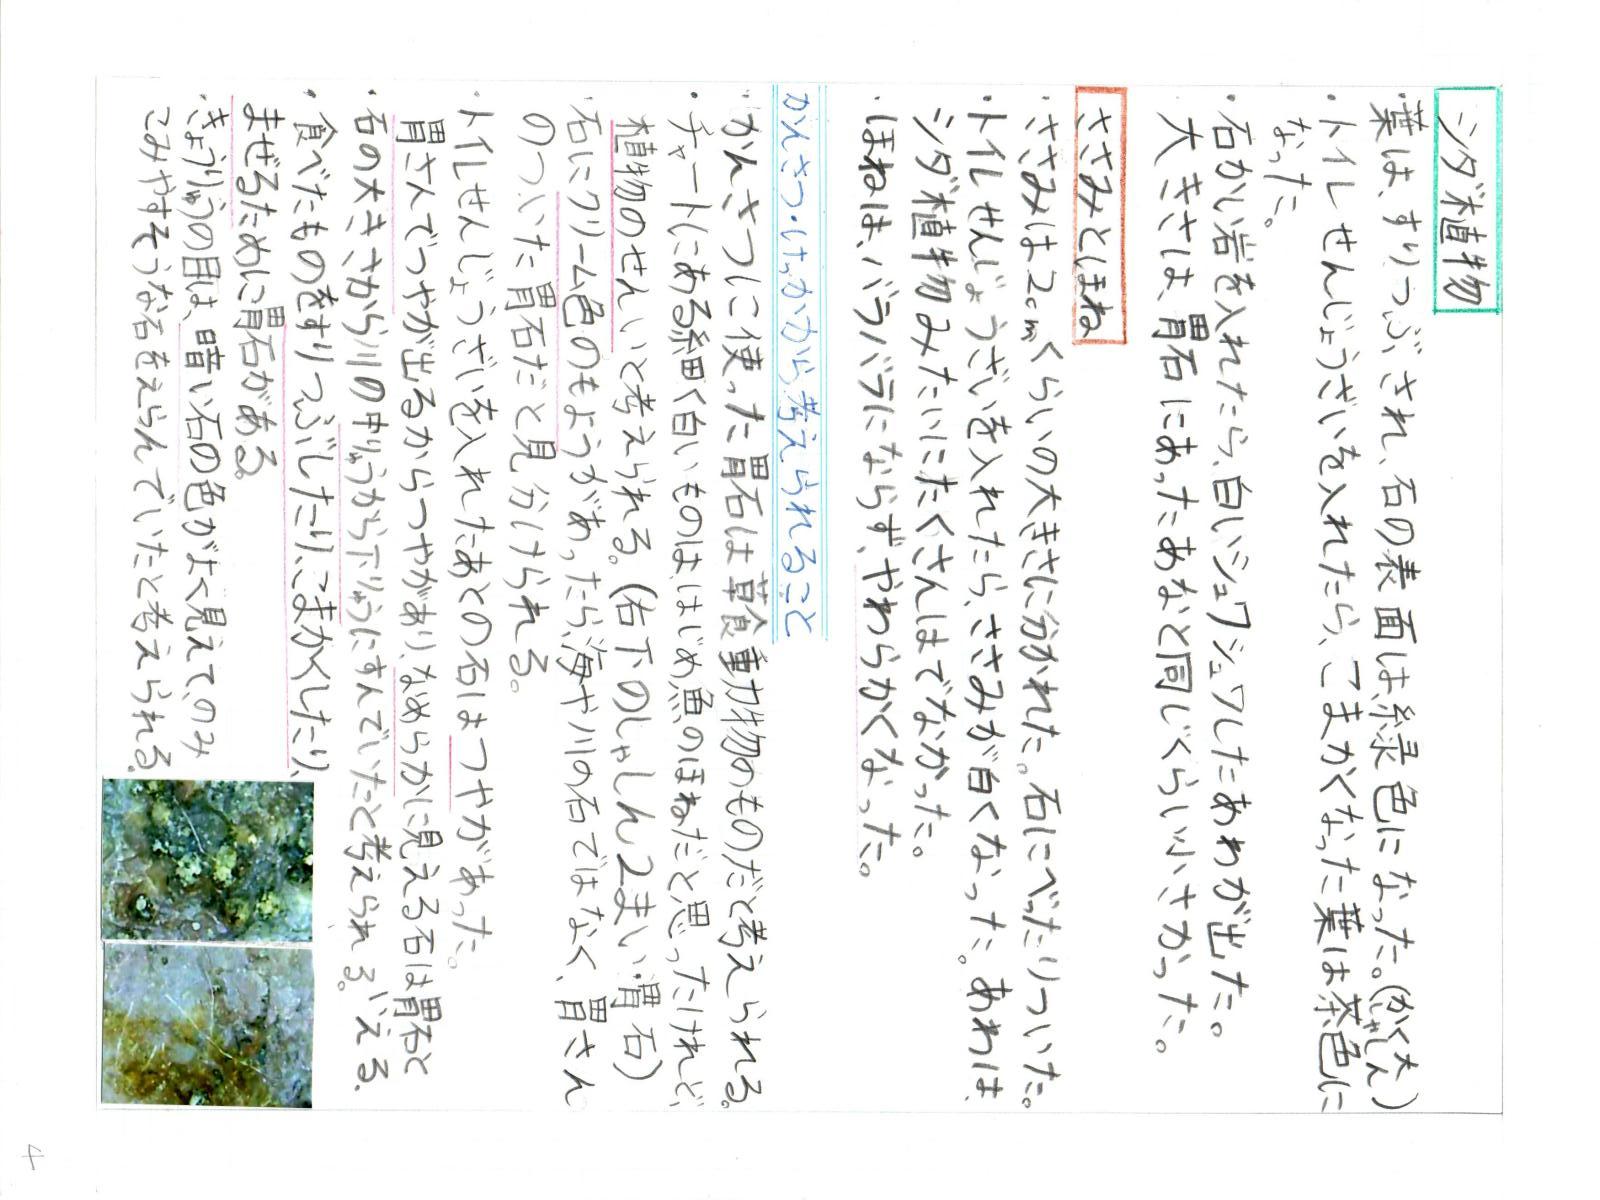 シダ植物
・葉は、すりつぶされ、石の表面は緑色になった。(かく大しゃしん)
・トイレせんじょうざいを入れたら、こまかくなった葉は茶色に
なった。
・石かい岩を入れたら、白いシュワシュワしたあわが出た。
大きさは、胃石にあったあなと同じくらい小さかった。
ささみとほね
・ささみは2cmくらいの大きさに分かれた。石にべったりついた。
・トイレせんじょうざいを入れたら、ささみが白くなった。あわは、
シダ植物みたいにたくさんはでなかった。
・ほねは、バラバラにならず、やわらかくなった。
かんさつ・けっかから考えられること
・かんさつに使った胃石は草食動物のものだと考えられる。
・チャートにある細く白いものは、はじめ魚のほねだと思ったけれど、
植物のせんいと考えられる。(右下のしゃしん2まい・胃石)
・石にクリーム色のもようがあったら、海や川の石ではなく、胃さん
のついた胃石だと見分けられる。
・トイレせんじょうざいを入れたあとの石はつやがあった。
胃さんでつやが出るからつやがあり、なめらかに見える石は胃石と
いえる。
・石の大きさから川の中りゅうから下りゅうにすんでいたと考えられる。
・食べたものをすりつぶしたり、こまかくしたり、
まぜるために胃石がある。
・きょうりゅうの目は、暗い石の色がよく見えて、のみ
こみやすそうな石をえらんでいたと考えられる。
4